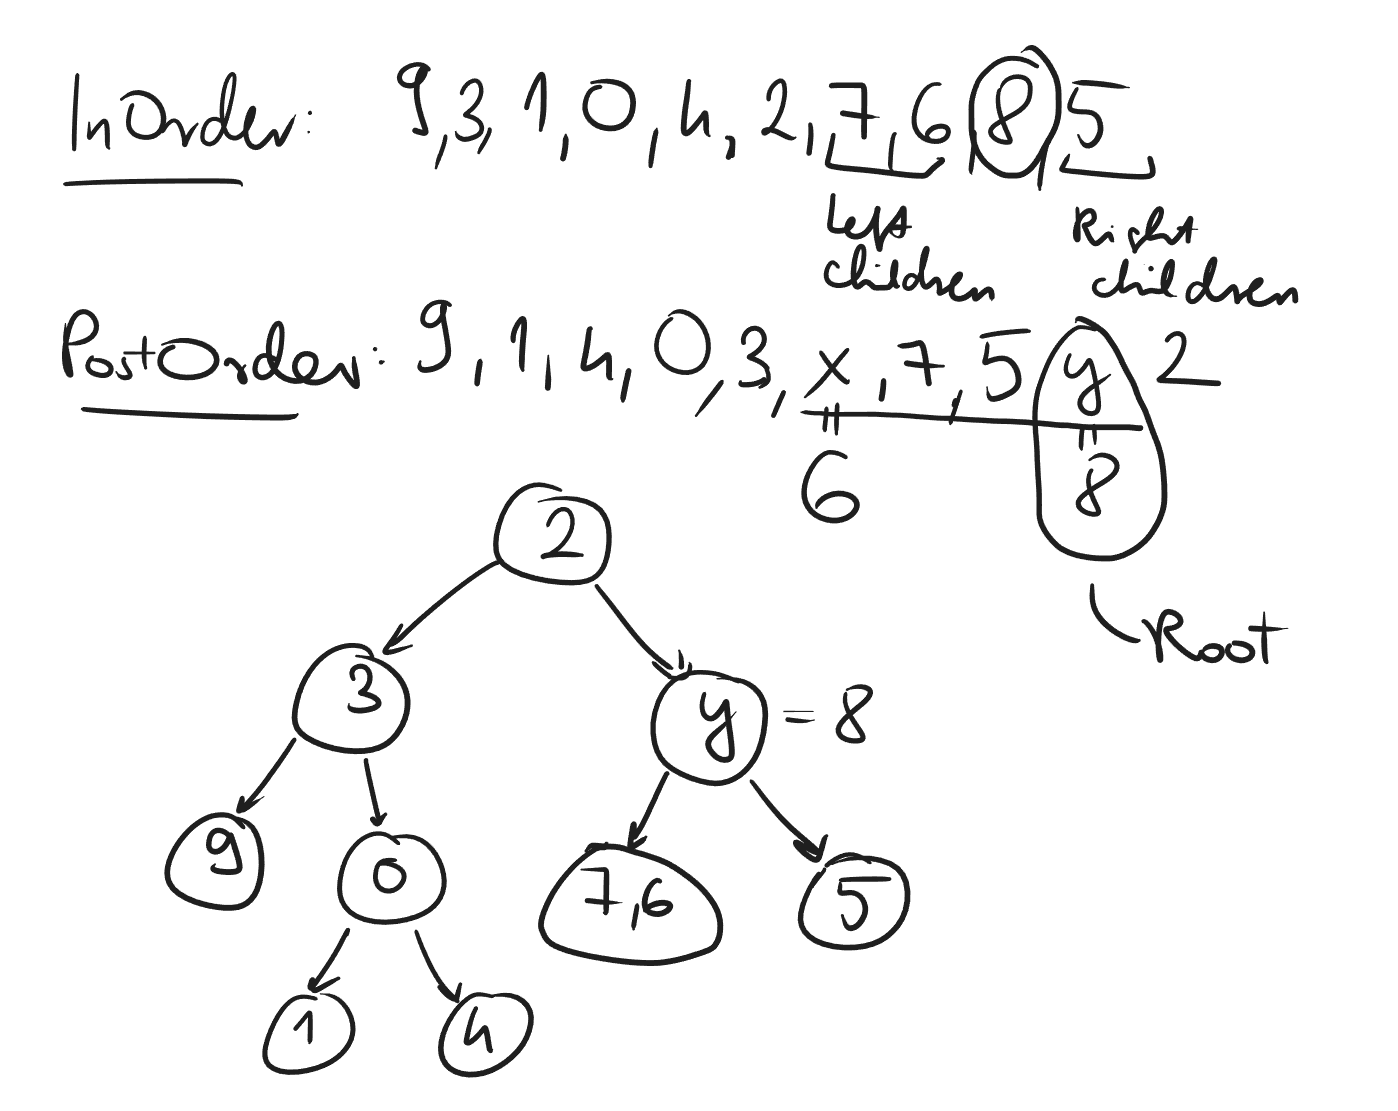 InOrder: 9, 3, 1, 0, 4, 2, 7, 6, 8, 5
Left children
Right children
PostOrder: 9, 1, 4, 0, 3, x, 7, 5 y 2
= 6
= 8
Root
2
3
y = 8
9
0
7,6
5
1
4